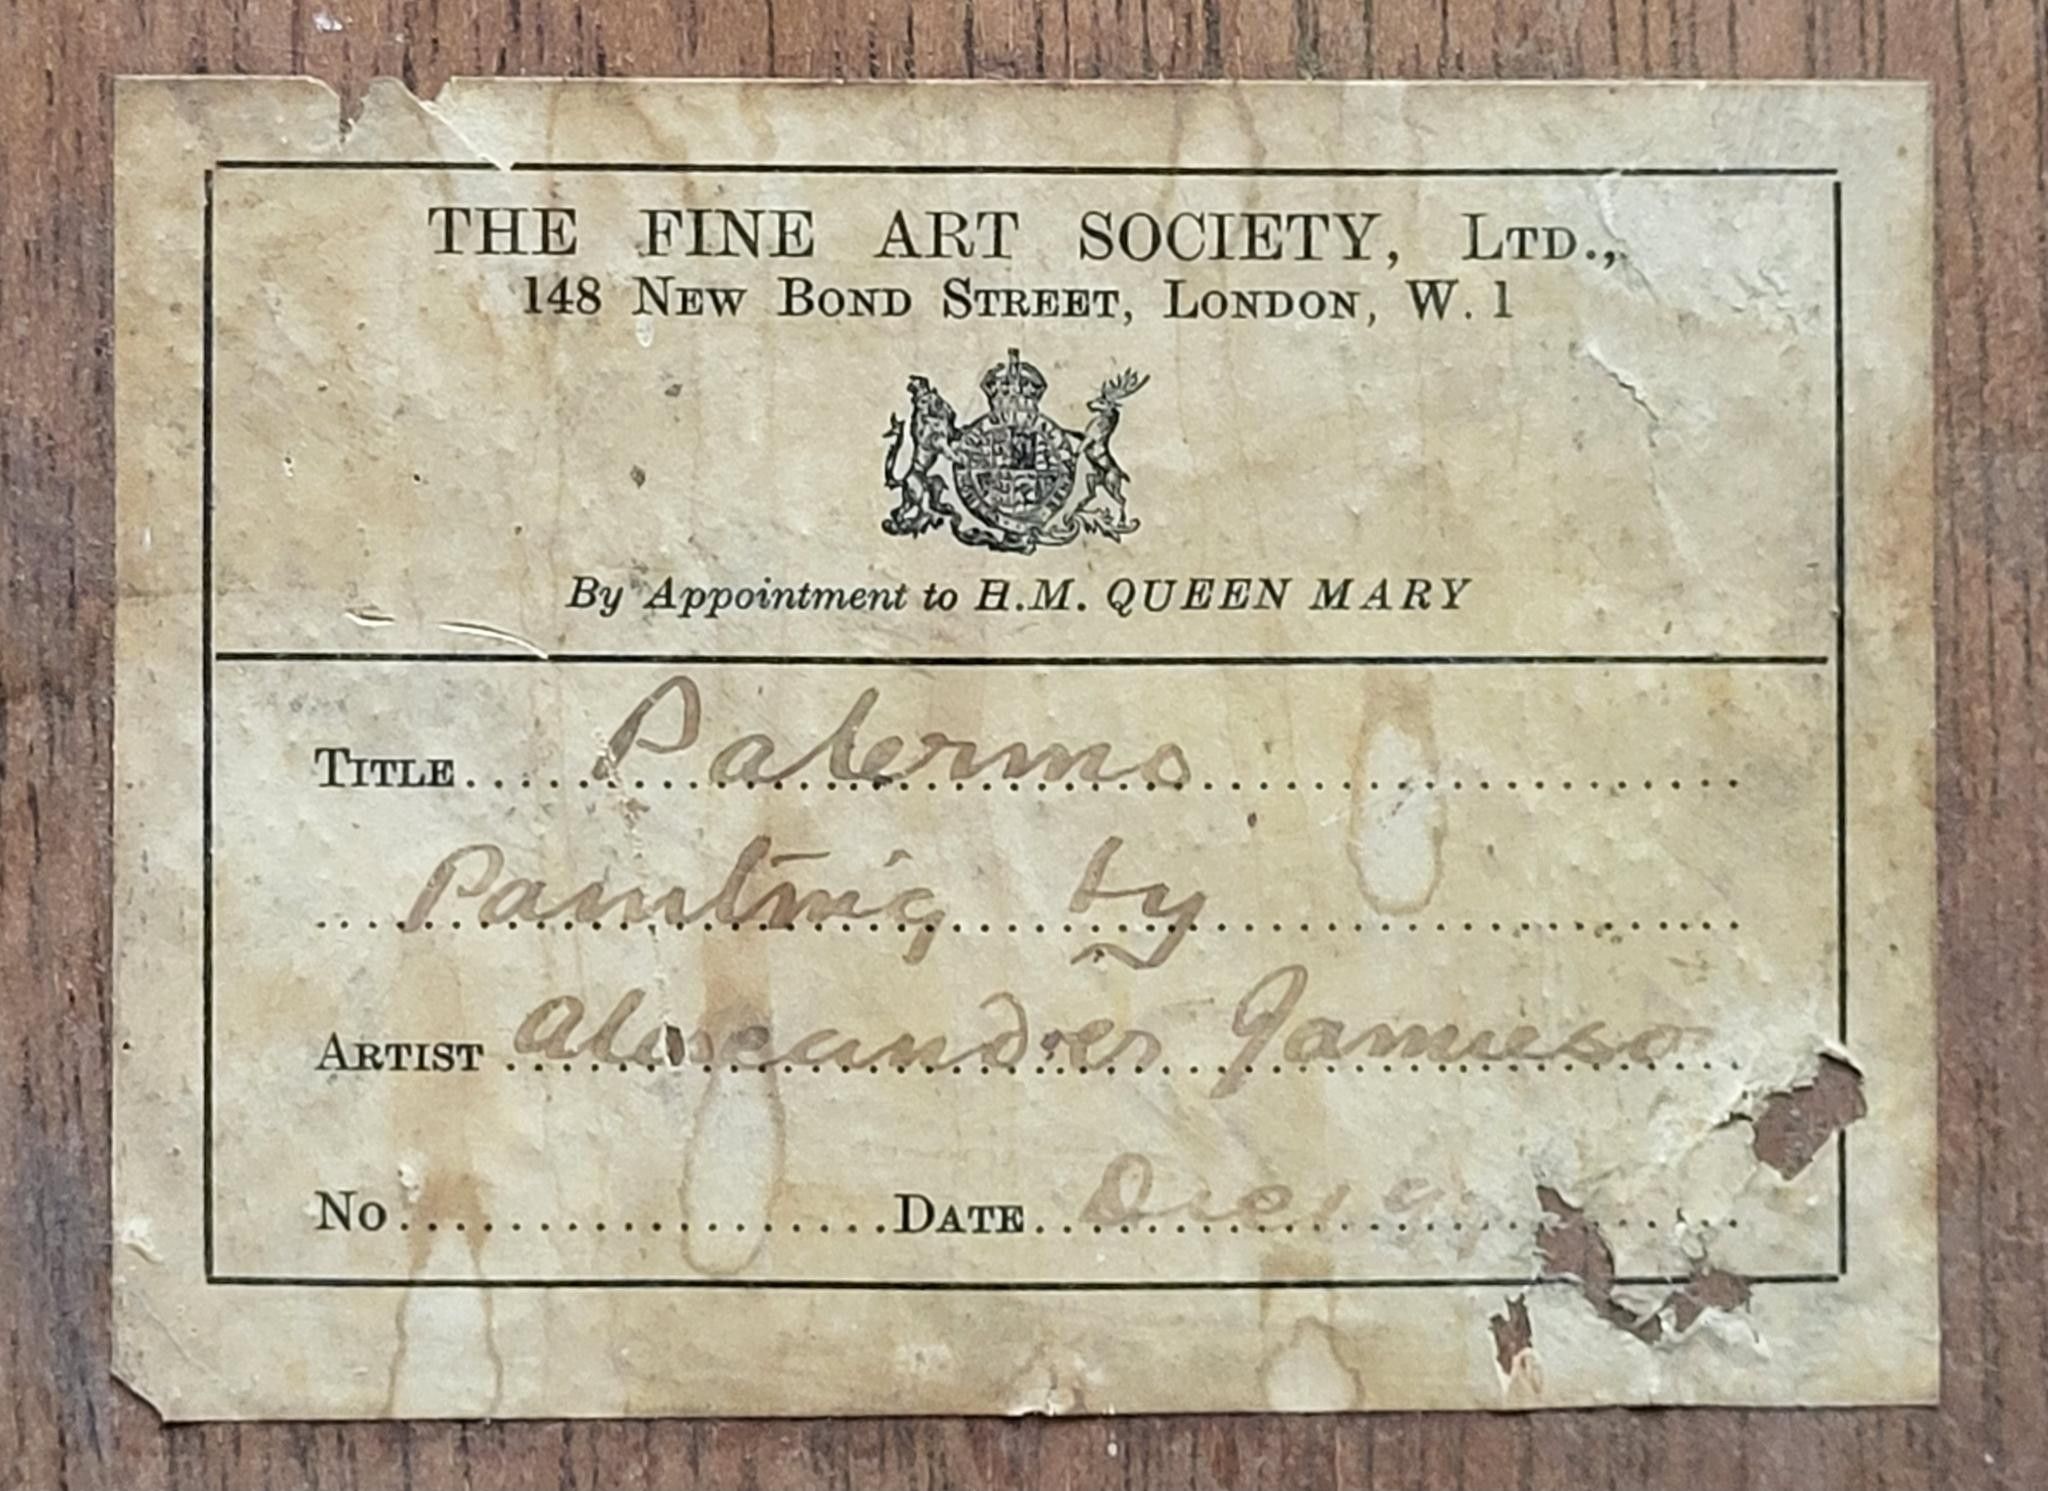 THE FINE ART SOCIETY, LTD.,
148 NEW BOND STREET, LONDON, W. 1
By Appointment to H.M. QUEEN MARY
TITLE.....Palermo
Painting by
ARTIST Alexander Jamieso
No..................DATE